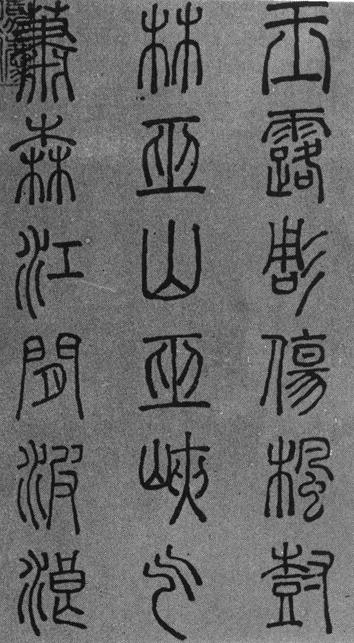 玉露彫傷楓樹
林巫山巫峽气
蕭森江間波浪